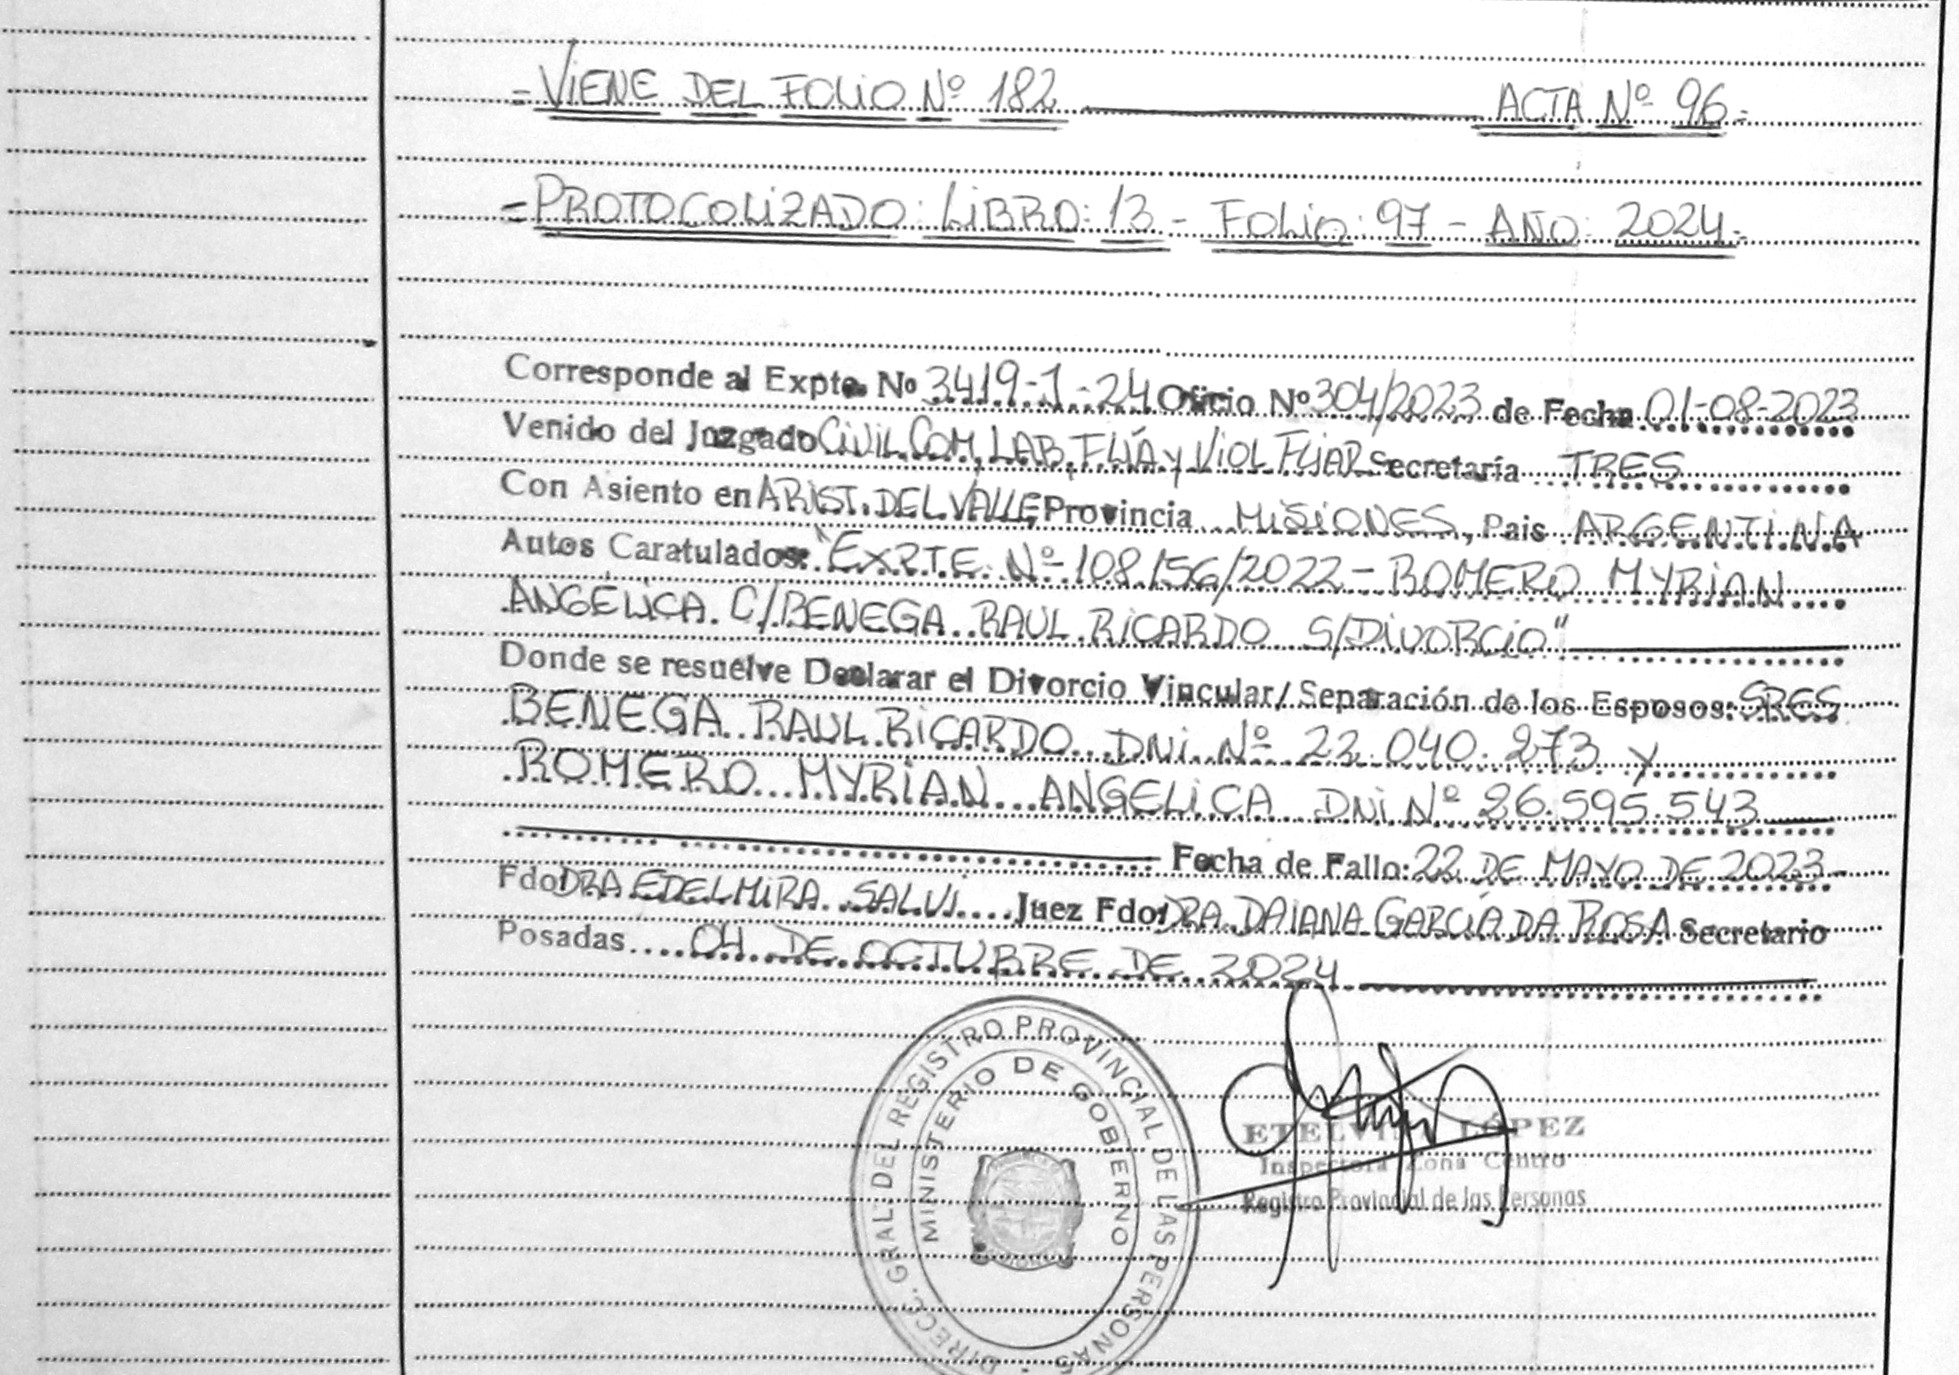 =VIENE DEL FOLIO Nº 182 ACTA Nº 96=
=PROTOCOLIZADO: LIBRO: 13 - FOLIO: 97 - AÑO: 2024=
Corresponde al Expte. Nº 3419-1-24 Oficio Nº 304/2023 de Fecha 01-08-2023
Venido del Juzgado CIVIL, COM, LAB, FLIA y VIOL FLIAR Secretaría TRES
Con Asiento en ARIST. DEL VALLE Provincia MISIONES, Pais ARGENTINA
Autos Caratulados: "EXPTE. Nº 108156/2022 - ROMERO MYRIAN
ANGÉLICA C/BENEGA RAUL RICARDO S/DIVORCIO"
Donde se resuelve Declarar el Divorcio Vincular/ Separación de los Esposos: SRES
BENEGA RAUL RICARDO DNI Nº 22.040.273 y
ROMERO MYRIAN ANGELICA DNI Nº 26.595.543
Fecha de Fallo: 22 DE MAYO DE 2023
Fdo DRA EDELMIRA SALVI Juez Fdo: DRA. DAIANA GARCÍA DA ROSA Secretario
Posadas 04 DE OCTUBRE DE 2024
DIRECC. GRAL. DEL REGISTRO PROVINCIAL DE LAS PERSONAS
MINISTERIO DE GOBIERNO
ETELVINA LÓPEZ
Inspectora Zona Centro
Registro Provincial de las Personas